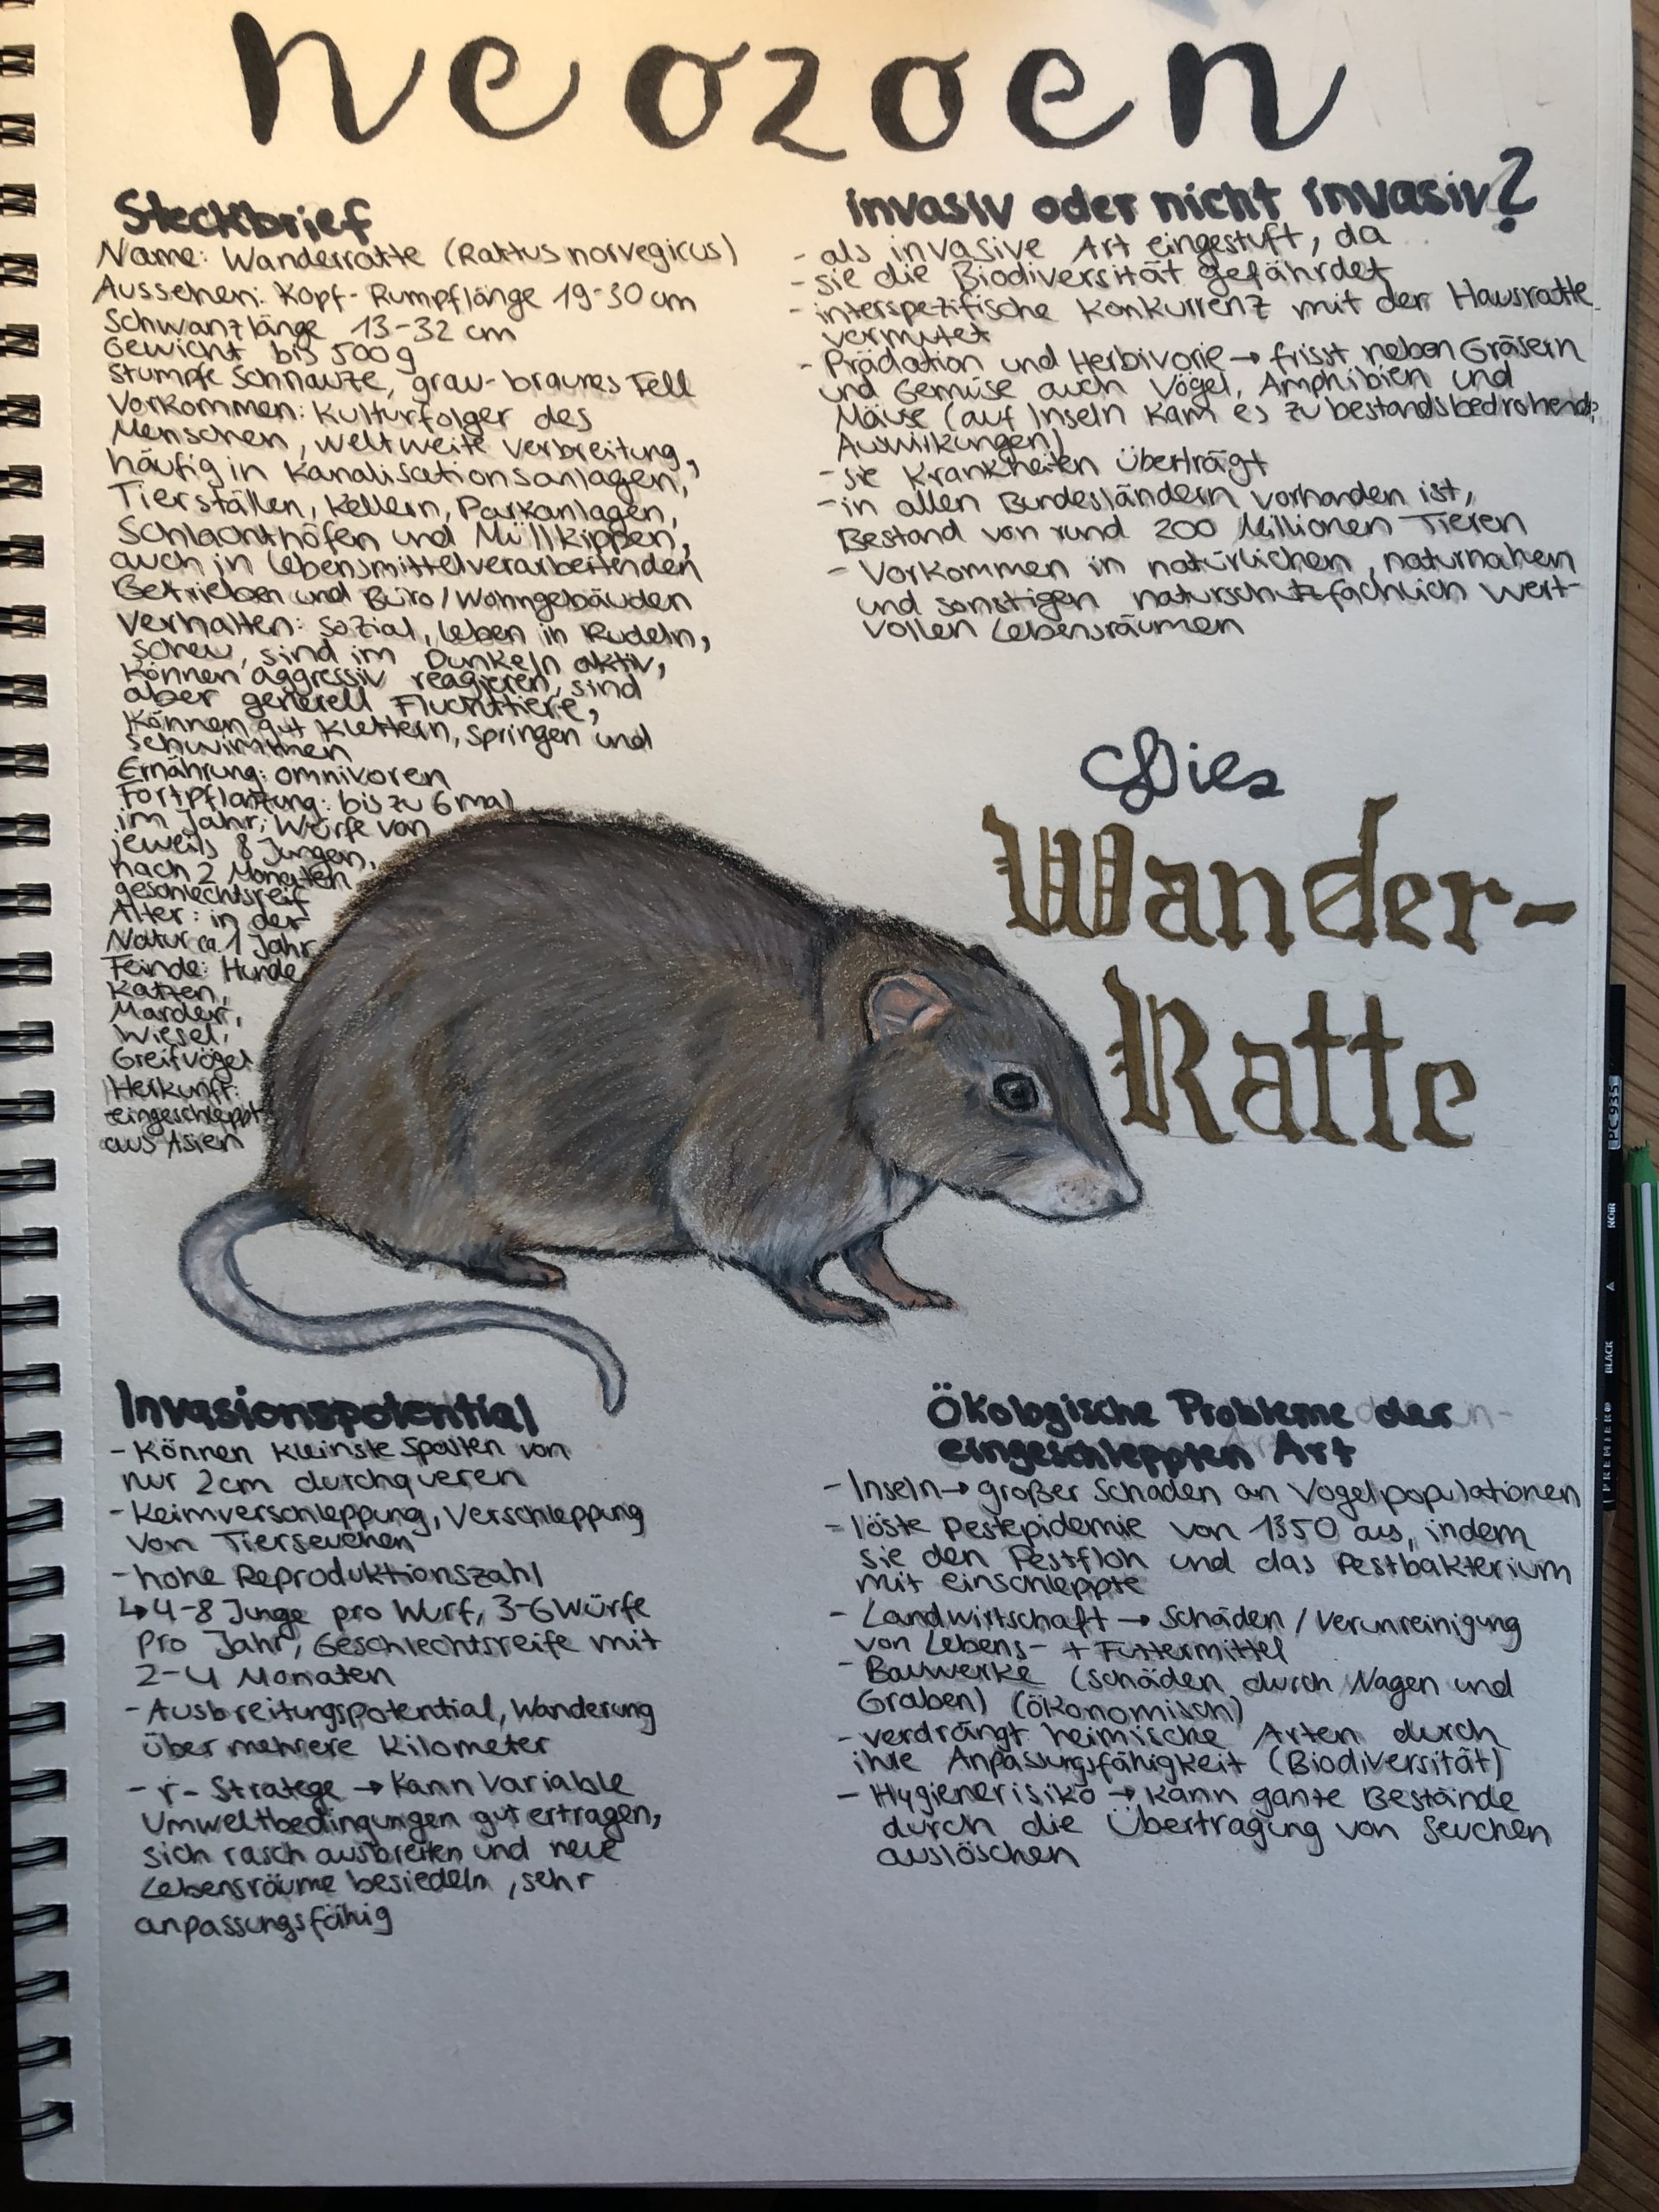 neozoen
Steckbrief
Name: Wanderratte (Rattus norvegicus)
Aussehen: Kopf-Rumpflänge 19-30 cm
Schwanzlänge 13-32 cm
Gewicht bis 500g
stumpfe Schnauze, grau-braunes Fell
Vorkommen: Kulturfolger des
Menschen, weltweite Verbreitung,
häufig in Kanalisationsanlagen,
Tierställen, Kellern, Parkanlagen,
Schlachthöfen und Müllkippen,
auch in lebensmittelverarbeitenden
Betrieben und Büro/Wohngebäuden
Verhalten: sozial, leben in Rudeln,
scheu, sind im Dunkeln aktiv,
können aggressiv reagieren, sind
aber generell Fluchttiere,
können gut klettern, springen und
schwimmen
Ernährung: omnivoren
Fortpflanzung: bis zu 6 mal
im Jahr; Würfe von
jeweils 8 Jungen,
nach 2 Monaten
geschlechtsreif
Alter: in der
Natur ca. 1 Jahr
Feinde: Hunde
Katzen,
Marder,
Wiesel,
Greifvögel
Herkunft:
eingeschleppt
aus Asien
invasiv oder nicht invasiv?
- als invasive Art eingestuft, da
- sie die Biodiversität gefährdet
- interspezifische Konkurrenz mit der Hausratte
vermutet
- Prädation und Herbivorie → frisst neben Gräsern
und Gemüse auch Vögel, Amphibien und
Mäuse (auf Inseln kam es zu bestandsbedrohend.
Auswirkungen)
- sie Krankheiten überträgt
- in allen Bundesländern vorhanden ist,
Bestand von rund 200 Millionen Tieren
- Vorkommen in natürlichen, naturnahen
und sonstigen naturschutzfachlich wert-
vollen Lebensräumen
Die
Wander-
Ratte
Invasionspotential
- Können kleinste Spalten von
nur 2cm durchqueren
- Keimverschleppung, Verschleppung
von Tierseuchen
- hohe Reproduktionszahl
↳ 4-8 Junge pro Wurf, 3-6 Würfe
pro Jahr, Geschlechtsreife mit
2-4 Monaten
- Ausbreitungspotential, Wanderung
über mehrere Kilometer
- r-Stratege → kann variable
Umweltbedingungen gut ertragen,
sich rasch ausbreiten und neue
Lebensräume besiedeln, sehr
anpassungsfähig
Ökologische Probleme der
eingeschleppten Art
- Inseln → großer Schaden an Vogelpopulationen
- löste Pestepidemie von 1350 aus, indem
sie den Pestfloh und das Pestbakterium
mit einschleppte
- Landwirtschaft → Schäden/Verunreinigung
von Lebens- + Futtermittel
- Bauwerke (Schäden durch Nagen und
Graben) (ökonomisch)
- verdrängt heimische Arten durch
ihre Anpassungsfähigkeit (Biodiversität)
- Hygienerisiko → kann ganze Bestände
durch die Übertragung von Seuchen
auslöschen
PREMIER BLACK NOIR PC935